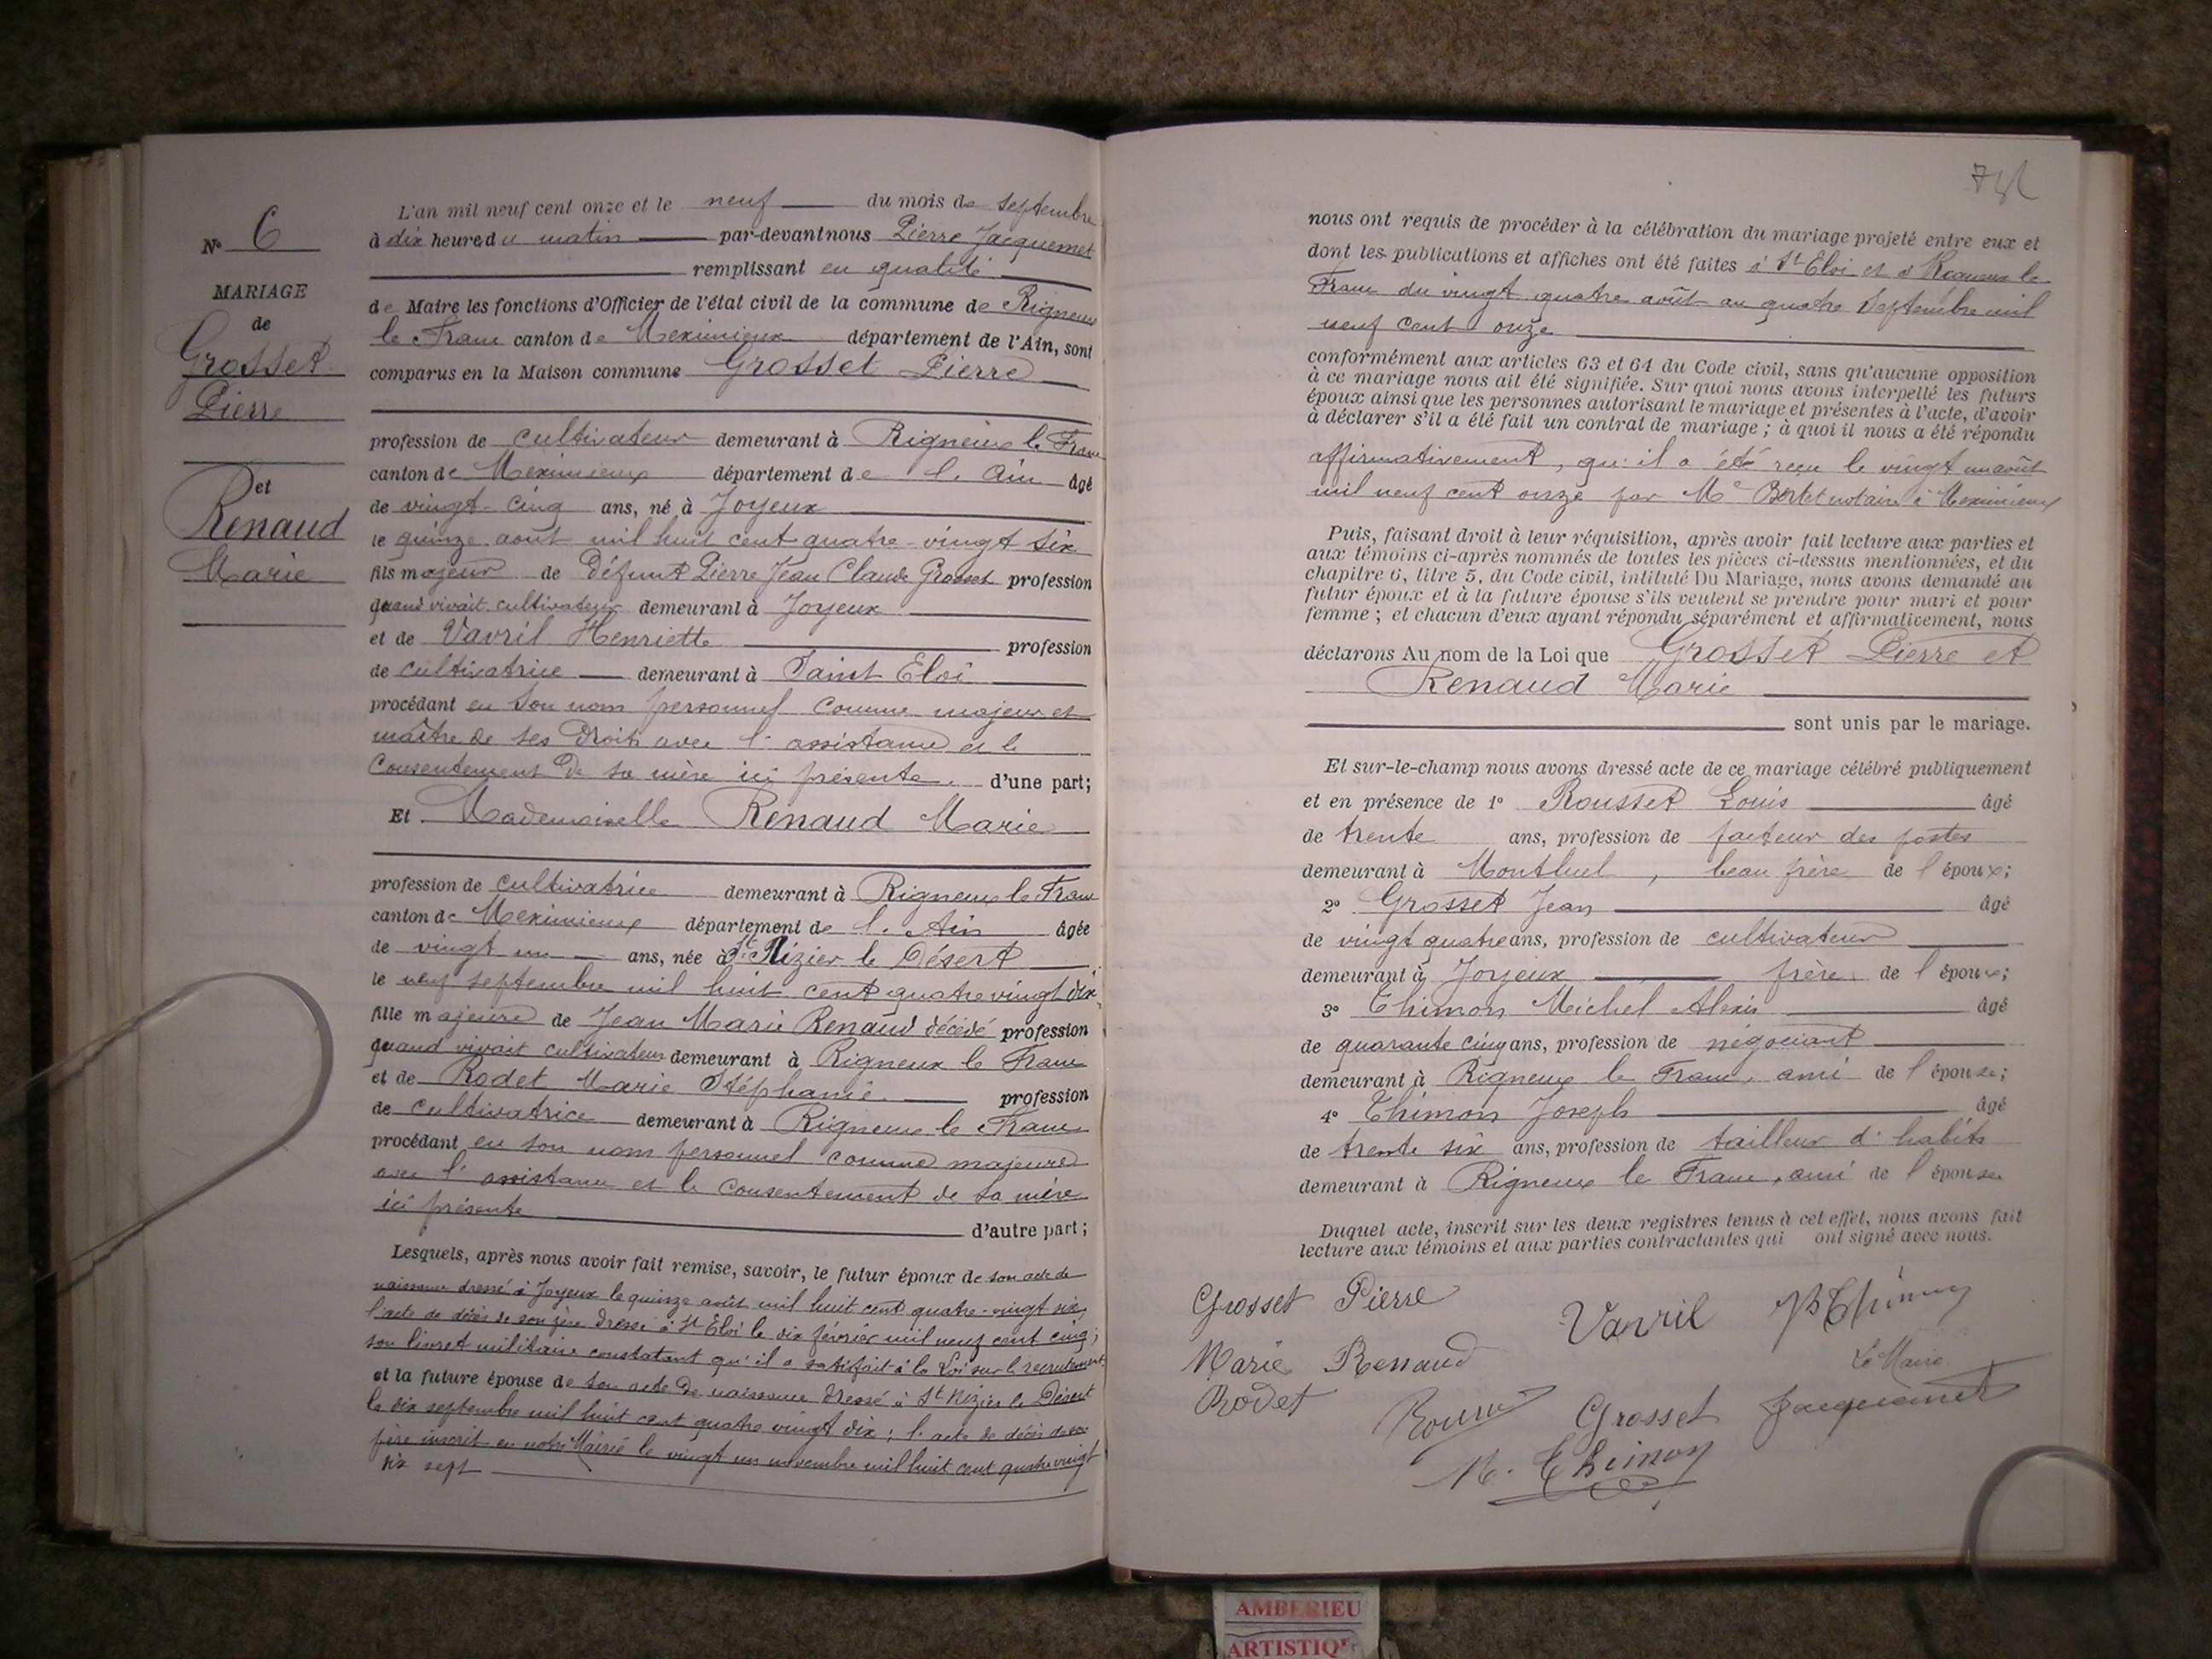 N° 6
MARIAGE
de
Grosset
Pierre
et
Renaud
Marie
L'an mil neuf cent onze et le neuf du mois de septembre
à dix heures du matin par-devant nous Pierre Jacquemet
remplissant en qualité
de Maire les fonctions d'Officier de l'état civil de la commune de Rigneux
le Franc canton de Meximieux département de l'Ain, sont
comparus en la Maison commune Grosset Pierre
profession de cultivateur demeurant à Rigneux le Franc
canton de Meximieux département de l'Ain âgé
de vingt-cinq ans, né à Joyeux
le quinze août mil huit cent quatre-vingt six
fils majeur de Défunt Pierre Jean Claude Grosset profession
quand vivait cultivateur demeurant à Joyeux
et de Vavril Henriette profession
de cultivatrice demeurant à Saint Eloi
procédant en son nom personnel comme majeur et
maître de ses droits avec l'assistance et le
consentement de sa mère ici présente. d'une part;
Et Mademoiselle Renaud Marie
profession de cultivatrice demeurant à Rigneux le Franc
canton de Meximieux département de l'Ain âgée
de vingt un ans, née à St Nizier le Désert
le neuf septembre mil huit cent quatre vingt dix
fille majeure de Jean Marie Renaud décédé profession
quand vivait cultivateur demeurant à Rigneux le Franc
et de Rodet Marie Stéphanie profession
de cultivatrice demeurant à Rigneux le Franc
procédant en son nom personnel comme majeure
avec l'assistance et le consentement de sa mère
ici présente d'autre part;
Lesquels, après nous avoir fait remise, savoir, le futur époux de son acte de
naissance dressé à Joyeux le quinze août mil huit cent quatre-vingt six,
l'acte de décès de son père dressé à St Eloi le dix février mil neuf cent cinq;
son livret militaire constatant qu'il a satisfait à la Loi sur le recrutement
et la future épouse de son acte de naissance dressé à St Nizier le Désert
le dix septembre mil huit cent quatre vingt dix; l'acte de décès de son
père inscrit en notre Mairie le vingt un novembre mil huit cent quatre vingt
dix sept
nous ont requis de procéder à la célébration du mariage projeté entre eux et
dont les publications et affiches ont été faites à St Eloi et à Rigneux le
Franc du vingt quatre août au quatre septembre mil
neuf cent onze
conformément aux articles 63 et 64 du Code civil, sans qu'aucune opposition
à ce mariage nous ait été signifiée. Sur quoi nous avons interpellé les futurs
époux ainsi que les personnes autorisant le mariage et présentes à l'acte, d'avoir
à déclarer s'il a été fait un contrat de mariage; à quoi il nous a été répondu
affirmativement, qu'il a été reçu le vingt un août
mil neuf cent onze par Me Bertet notaire à Meximieux
Puis, faisant droit à leur réquisition, après avoir fait lecture aux parties et
aux témoins ci-après nommés de toutes les pièces ci-dessus mentionnées, et du
chapitre 6, titre 5, du Code civil, intitulé Du Mariage, nous avons demandé au
futur époux et à la future épouse s'ils veulent se prendre pour mari et pour
femme; et chacun d'eux ayant répondu séparément et affirmativement, nous
déclarons Au nom de la Loi que Grosset Pierre et
Renaud Marie
sont unis par le mariage.
Et sur-le-champ nous avons dressé acte de ce mariage célébré publiquement
et en présence de 1° Rousset Louis âgé
de trente ans, profession de facteur des postes
demeurant à Montluel, beau frère de l'époux;
2° Grosset Jean âgé
de vingt quatre ans, profession de cultivateur
demeurant à Joyeux frère de l'époux;
3° Thimon Michel Alexis âgé
de quarante cinq ans, profession de négociant
demeurant à Rigneux le Franc, ami de l'épouse;
4° Thimon Joseph âgé
de trente six ans, profession de tailleur d'habits
demeurant à Rigneux le Franc, ami de l'épouse
Duquel acte, inscrit sur les deux registres tenus à cet effet, nous avons fait
lecture aux témoins et aux parties contractantes qui ont signé avec nous.
Grosset Pierre
Vavril
Thimon
Marie Renaud
Le Maire
Rodet
Grosset
Jacquemet
M. Thimon
AMBERIEU